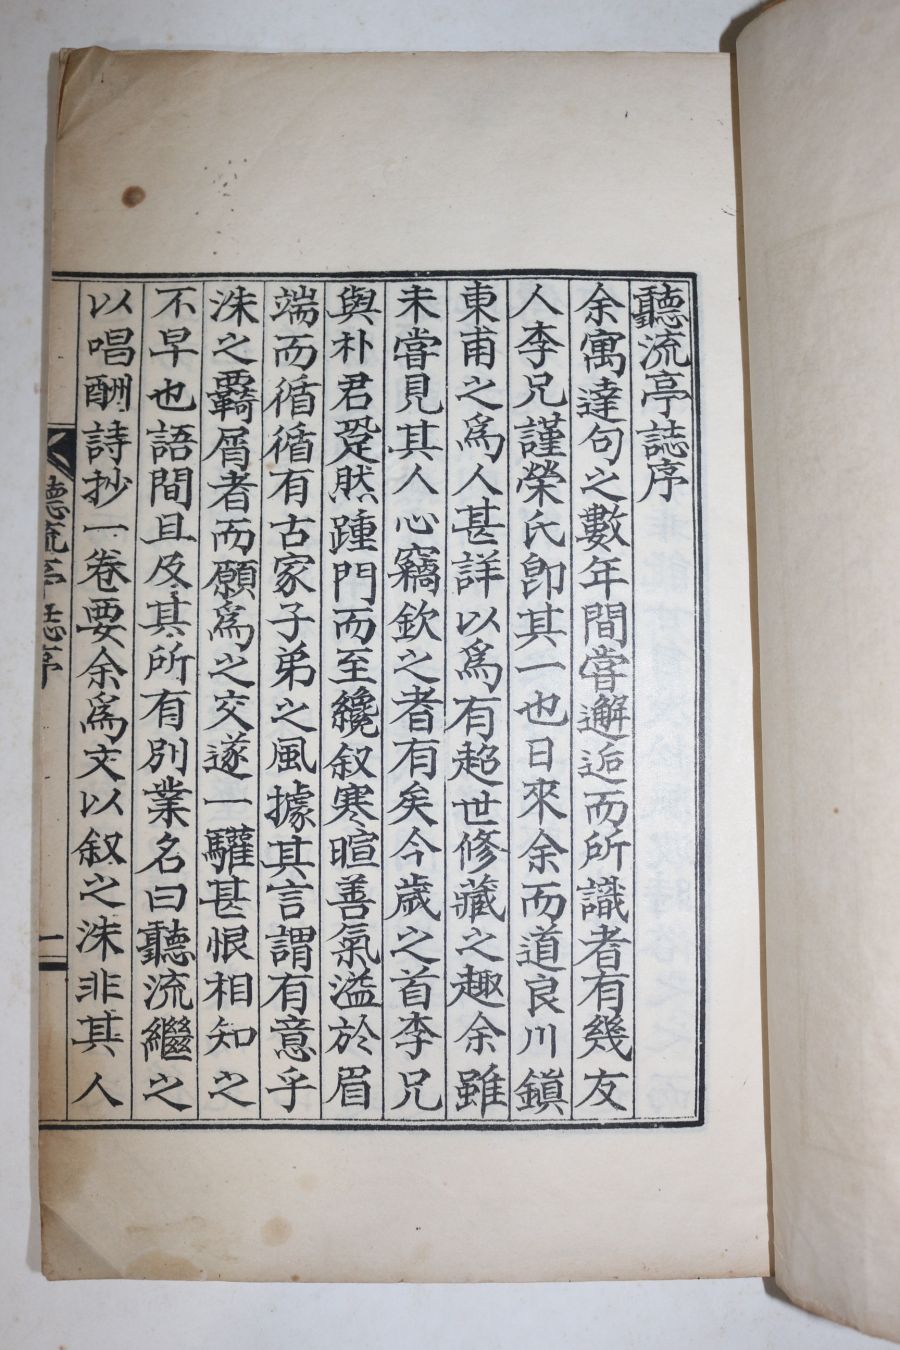 聽流亭誌序
余寓達句之數年間嘗邂逅而所識者有幾友
人李兄謹榮氏卽其一也日來余而道良川鎭
東甫之爲人甚詳以爲有趍世修藏之趣余雖
未嘗見其人心竊欽之者有矣今歲之首李兄
與朴君跫然踵門而至纔叙寒暄善氣溢於眉
端而循循有古家子弟之風據其言謂有意乎
洙之覉屑者而願爲之交遂一驩甚恨相知之
不早也語間且及其所有別業名曰聽流繼之
以唱酬詩抄一卷要余爲文以叙之洙非其人
聽流亭誌序
一